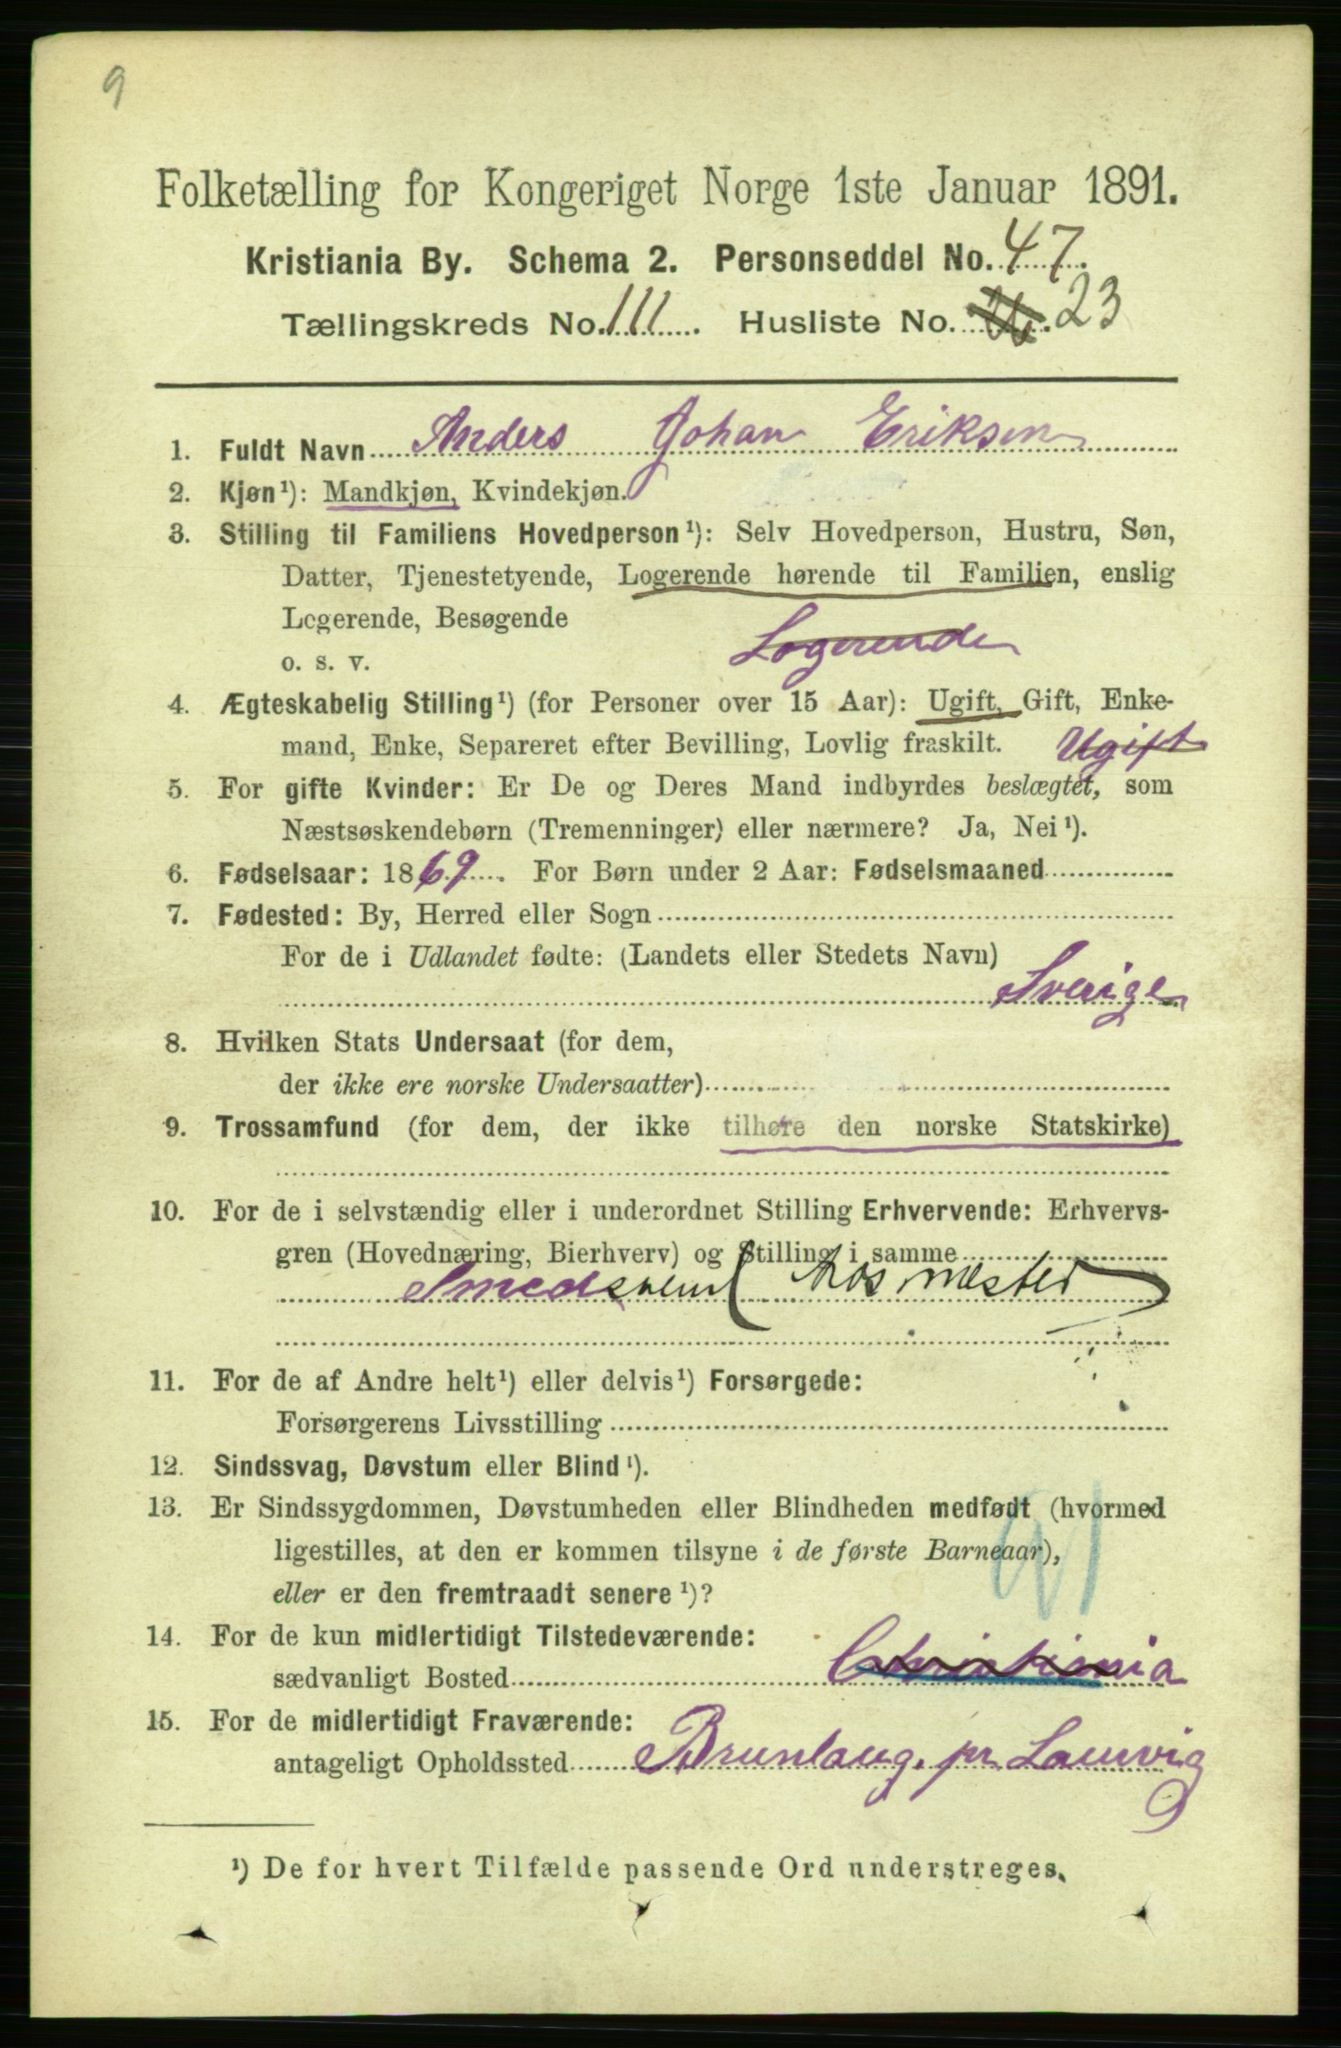 9
Folketælling for Kongeriget Norge 1ste Januar 1891.
Kristiania By. Schema 2. Personseddel No. 47.
Tællingskreds No. 111. Husliste No. 23
1. Fuldt Navn Anders Johan Eriksen
2. Kjøn¹): Mandkjøn, Kvindekjøn.
3. Stilling til Familiens Hovedperson¹): Selv Hovedperson, Hustru, Søn,
Datter, Tjenestetyende, Logerende hørende til Familien, enslig
Logerende, Besøgende
o. s. v. Logerende
4. Ægteskabelig Stilling¹) (for Personer over 15 Aar): Ugift, Gift, Enke-
mand, Enke, Separeret efter Bevilling, Lovlig fraskilt. Ugift
5. For gifte Kvinder: Er De og Deres Mand indbyrdes beslægtet, som
Næstsøskendebørn (Tremenninger) eller nærmere? Ja, Nei¹).
6. Fødselsaar: 1869. For Børn under 2 Aar: Fødselsmaaned
7. Fødested: By, Herred eller Sogn
For de i Udlandet fødte: (Landets eller Stedets Navn)
Sverige
8. Hvilken Stats Undersaat (for dem,
der ikke ere norske Undersaatter)
9. Trossamfund (for dem, der ikke tilhøre den norske Statskirke)
10. For de i selvstændig eller i underordnet Stilling Erhvervende: Erhvervs-
gren (Hovednæring, Bierhverv) og Stilling i samme
Smedsvend (hos mester)
11. For de af Andre helt¹) eller delvis¹) Forsørgede:
Forsørgerens Livsstilling
12. Sindssvag, Døvstum eller Blind¹).
13. Er Sindssygdommen, Døvstumheden eller Blindheden medfødt (hvormed
ligestilles, at den er kommen tilsyne i de første Barneaar),
eller er den fremtraadt senere¹)?
14. For de kun midlertidigt Tilstedeværende:
sædvanligt Bosted Christiania
15. For de midlertidigt Fraværende:
antageligt Opholdssted Brunlaug. pr Laurvig
¹) De for hvert Tilfælde passende Ord understreges.